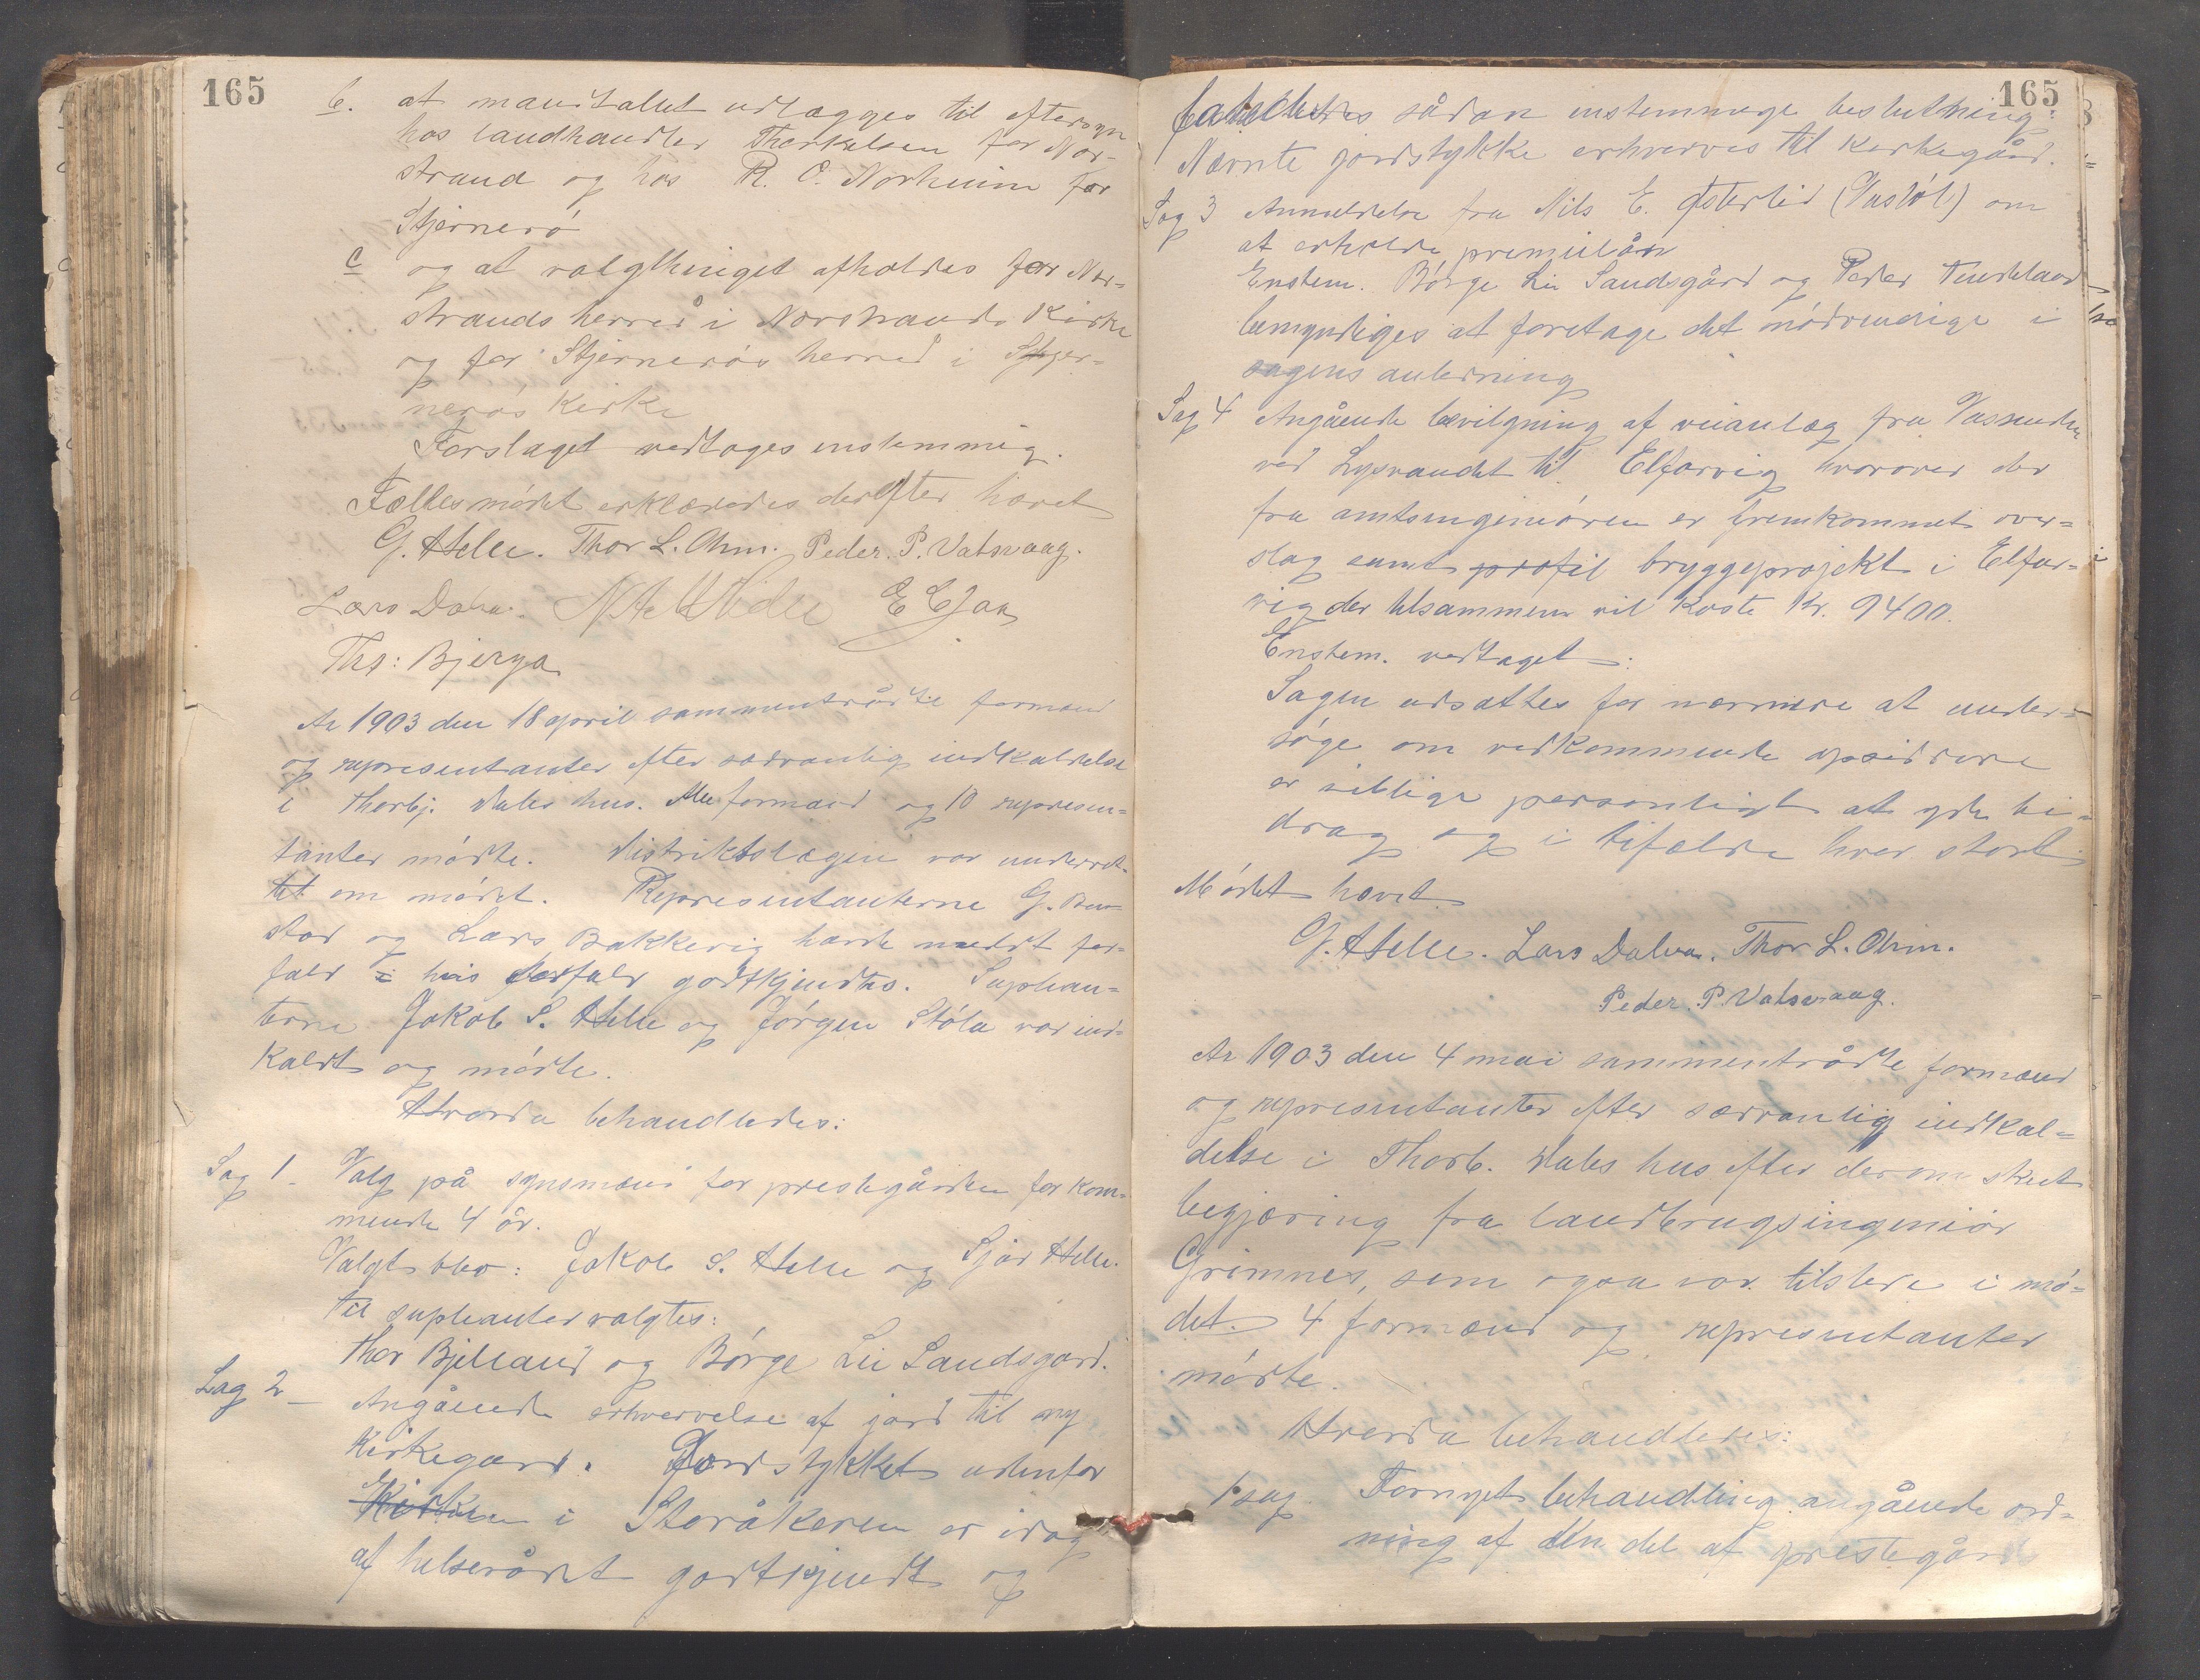 165
b. at mantallet udlægges til eftersyn
hos landhandler Thorkelsen for Nær-
strand og hos R. C. Norheim for
Sjernerö
c og at valgthinget afholdes for Nær-
strands herred i Nærstrands Kirke
og for Sjernerös herred i Sjer-
nerös Kirke
Forslaget vedtoges enstemmig.
Fællesmödet erklæredes derefter hævet
G. Helle. Thor L. Ohm. Peder. P. Vatsvaag.
Lars Dalva.
Ths: Bjerga
År 1903 den 18 april sammentrådte formænd
og repræsentanter efter sædvanlig indkaldelse
i Thorbj. Dales hus. Alle formænd og 10 repræsen-
tanter mödte. Distriktslægen var underret-
tet om mödet. Repræsentanterne G.
og Lars Bakkevig havde meldt for-
fald i hvis forfald godtkjendtes. Suplean-
terne Jakob S. Helle og Jörgen Stöle var ind-
kaldt og mödte.
Hvorda behandledes:
Sag 1 - Valg på synsmænd for prestegården for kom-
mende 4 år.
Valgt blev: Jakob S. Helle og Sjur Helle.
til supleanter valgtes:
Thor Bjelland og Börge Lie Sandsgard.
Sag 2 - Angående erhvervelse af jord til ny
Kirkegard. Jordstykket udenfor
Kirken i Storåkeren er idag
af helserådet godtkjendt og
165
fattedes sådan enstemmige beslutning:
Nævnte jordstykke erhverves til Kirkegård.
Sag 3 Anmeldelse fra Nils E. Österlid (Vastöl) om
at erholde premielån
Enstem. Börge Lie Sandsgård og Peder Tindeland
bemyndiges at foretage det nödvendige i
sagens anledning
Sag 4 Angående bevilgning af veianlæg fra Vasenden
ved Lysvandet til Elfarvig hvorover der
fra amtsingeniören er fremkommet over-
slag samt profil bryggeprojekt i Elfar-
vig der tilsammen vil koste Kr. 9400.
Enstem. vedtaget:
Sagen udsattes for nærmere at under-
söge om vedkommende opsiddere
er villige personligt at yde bi-
drag og i tifælde hvor stort
Mödet hævet
G. Helle. Lars Dalva. Thor L. Ohm.
Peder. P. Vatsvaag.
År 1903 den 4 mai sammentrådte formænd
og repræsentanter efter sædvanlig indkal-
delse i Thorb. Dales hus efter derom skeet
begjæring fra landbrugsingeniör
Grimnes, som ogsa var tilstede i mö-
det. 4 formænd og repræsentanter
mödte.
Hvorda behandledes:
1 sag. Fornyet behandling angående ord-
ning af den del af prestegård